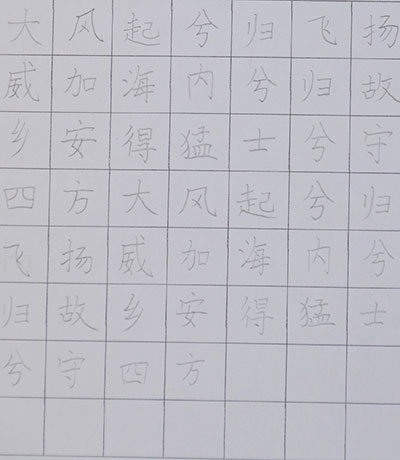 大风起兮归飞扬
威加海内兮归故
乡安得猛士兮守
四方大风起兮归
飞扬威加海内兮
归故乡安得猛士
兮守四方